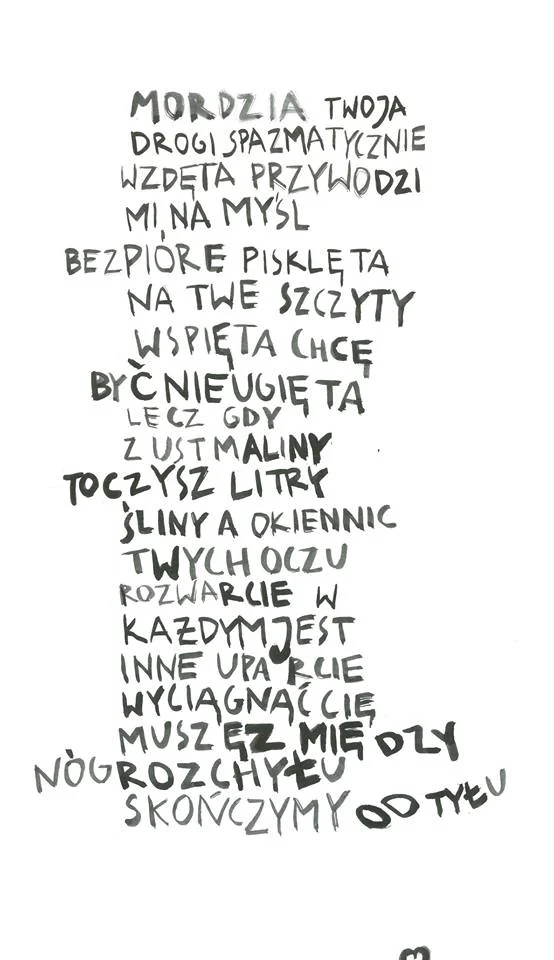 MORDZIA TWOJA
DROGI SPAZMATYCZNIE
WZDĘTA PRZYWODZI
MI NA MYŚL
BEZPIÓRE PISKLĘTA
NA TWE SZCZYTY
WSPIĘTA CHCĘ
BYĆ NIEUGIĘTA
LECZ GDY
Z UST MALINY
TOCZYSZ LITRY
ŚLINY A OKIENNIC
TWYCH OCZU
ROZWARCIE W
KAŻDYM JEST
INNE UPARCIE
WYCIĄGNĄĆ CIĘ
MUSZĘ Z MIĘDZY
NÓG ROZCHYŁU
SKOŃCZYMY OD TYŁU